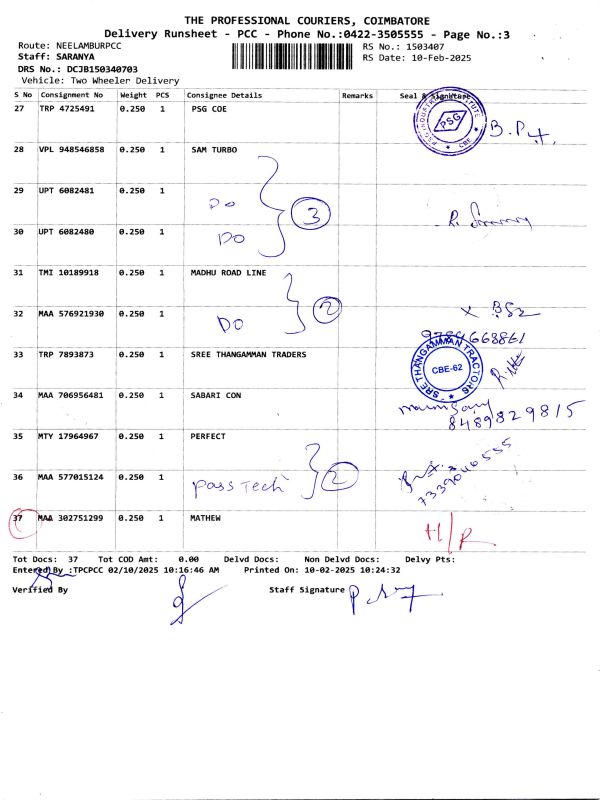 THE PROFESSIONAL COURIERS, COIMBATORE
Delivery Runsheet - PCC - Phone No.:0422-3505555 - Page No.:3
Route: NEELAMBURPCC RS No.: 1503407
Staff: SARANYA RS Date: 10-Feb-2025
DRS No.: DCJB150340703
Vehicle: Two Wheeler Delivery
S No Consignment No Weight PCS Consignee Details Remarks Seal & Signature
27 TRP 4725491 0.250 1 PSG COE
PSG INDUSTRIAL INSTITUTE PSG CBE
28 VPL 948546858 0.250 1 SAM TURBO
29 UPT 6082481 0.250 1 DO 3
30 UPT 6082480 0.250 1 DO
31 TMI 10189918 0.250 1 MADHU ROAD LINE
32 MAA 576921930 0.250 1 DO 2
33 TRP 7893873 0.250 1 SREE THANGAMMAN TRADERS
SRE THANGAMMAN TRACTORS CBE-62
34 MAA 706956481 0.250 1 SABARI CON
8489829815
35 MTY 17964967 0.250 1 PERFECT
36 MAA 577015124 0.250 1 Pass Tech 2
37 MAA 302751299 0.250 1 MATHEW H/R
Tot Docs: 37 Tot COD Amt: 0.00 Delvd Docs: Non Delvd Docs: Delvy Pts:
Entered By :TPCPCC 02/10/2025 10:16:46 AM Printed On: 10-02-2025 10:24:32
Verified By Staff Signature